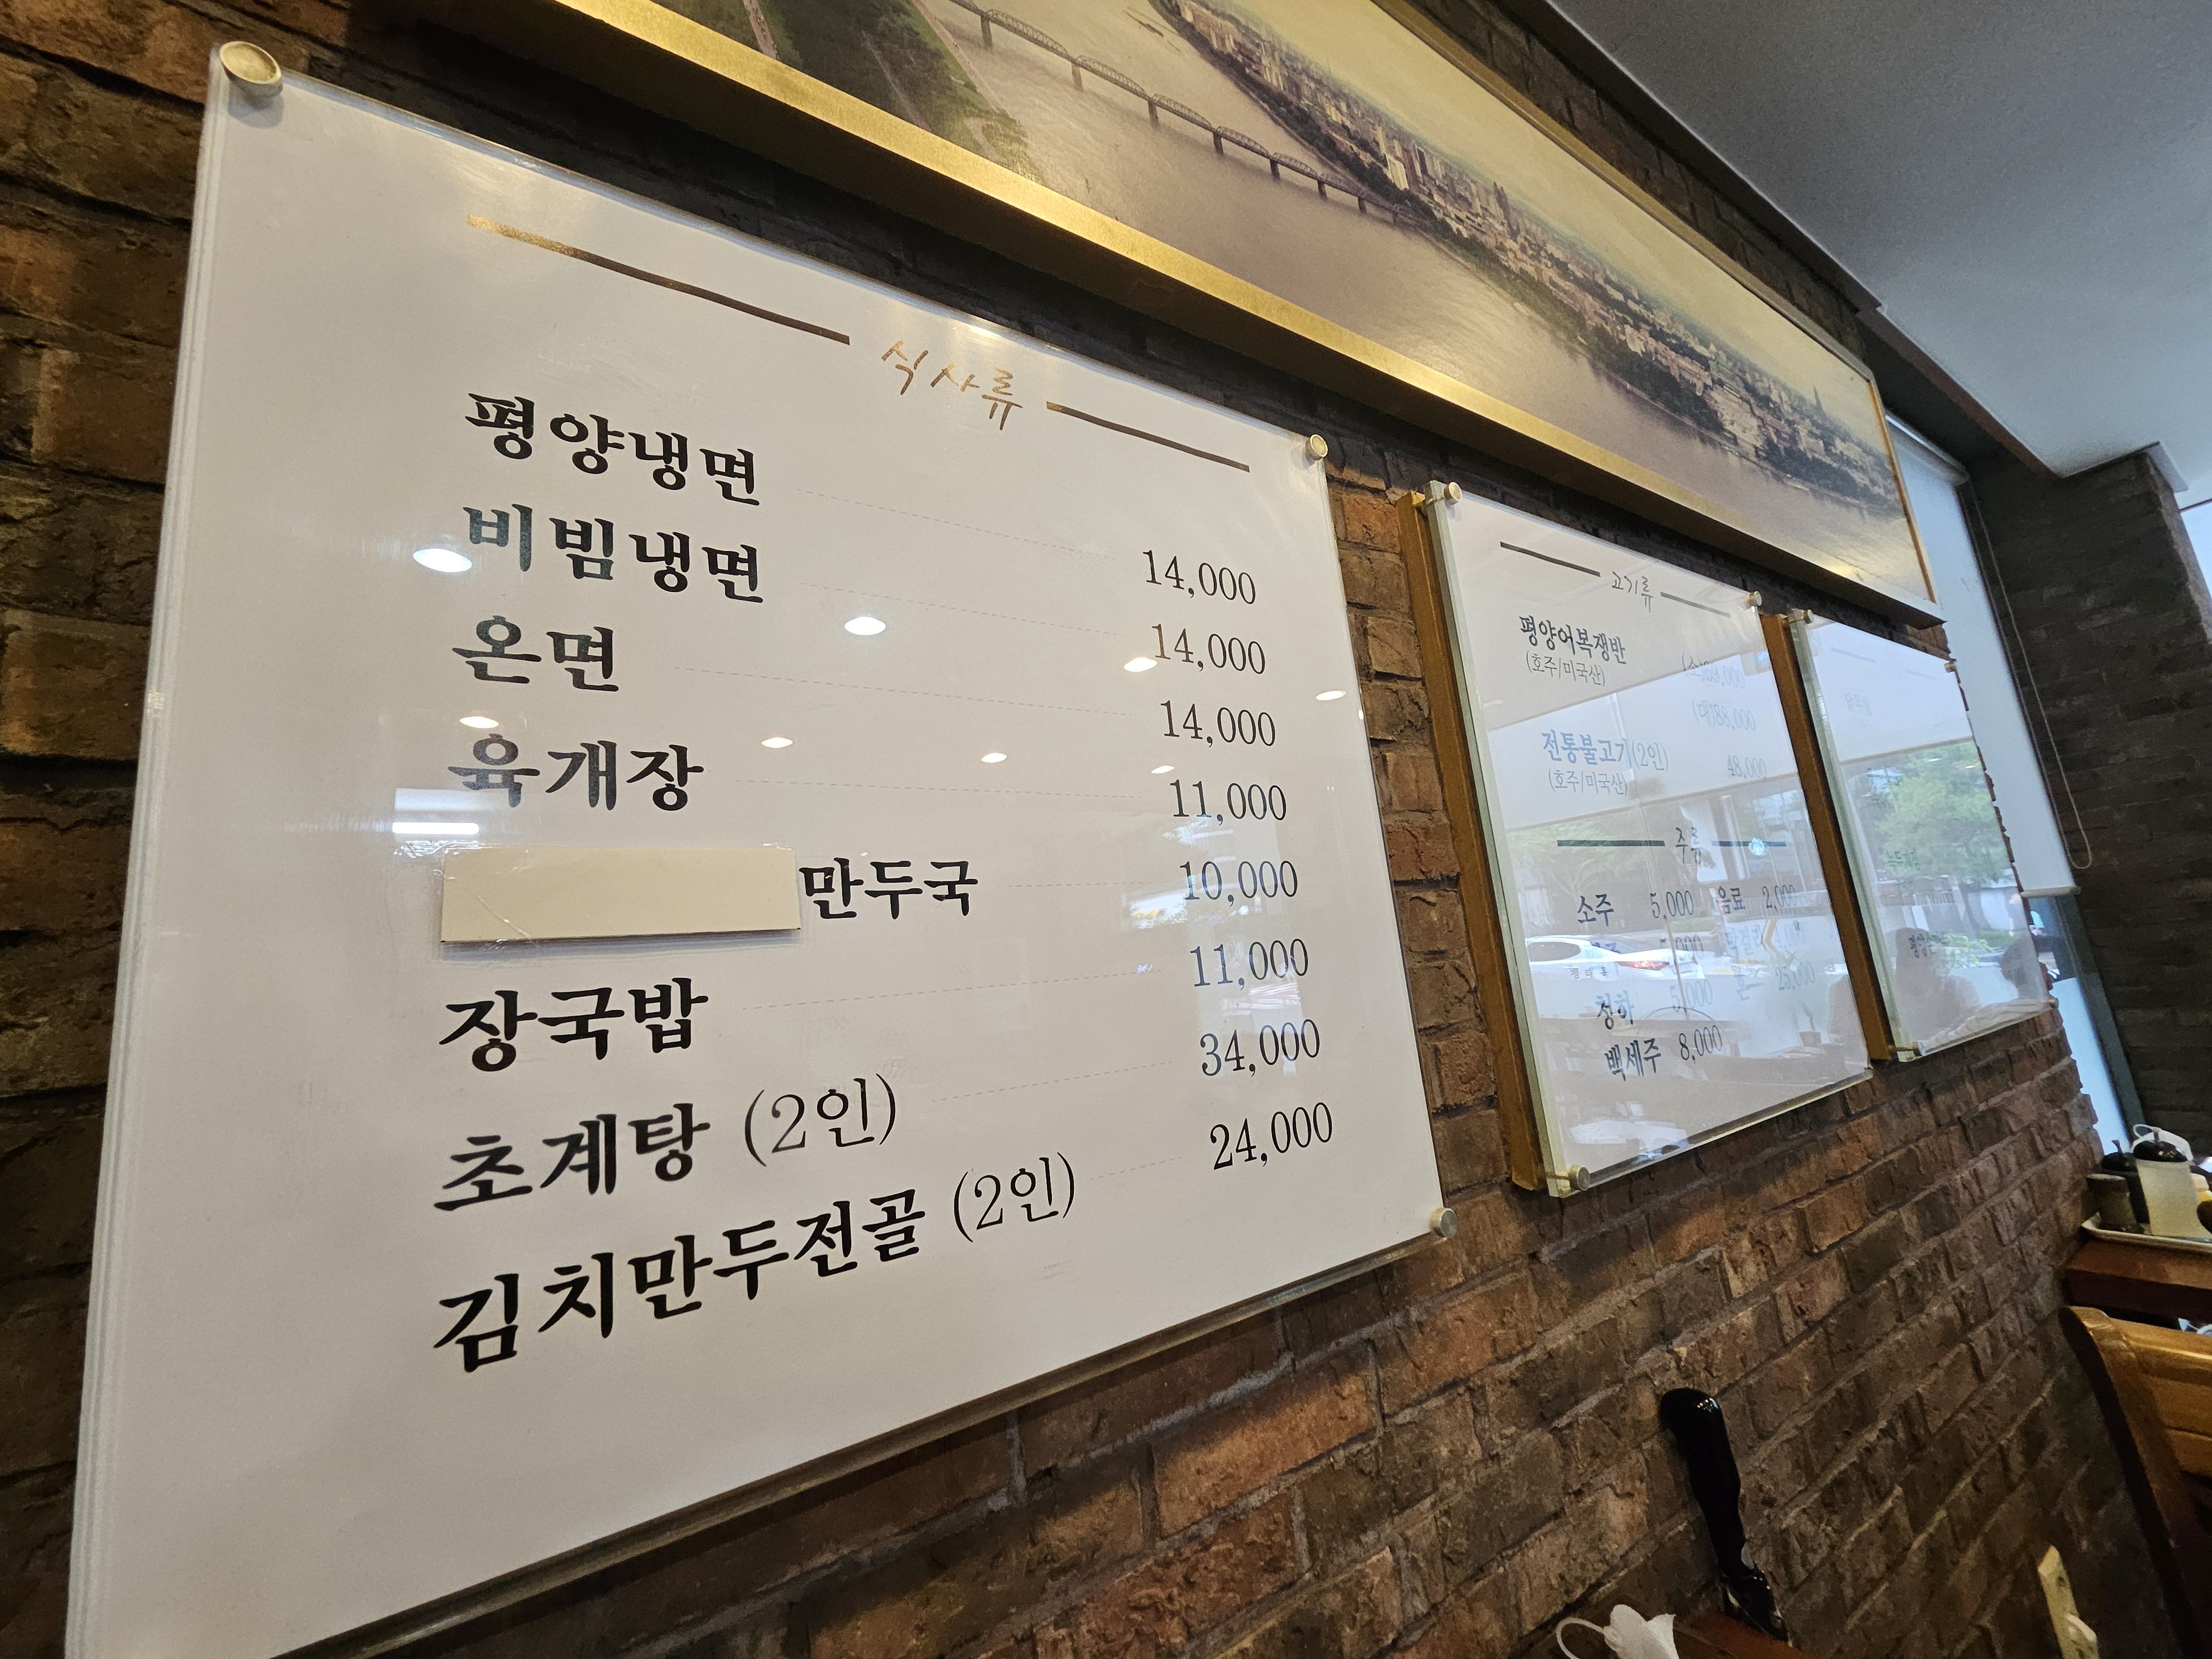 식사류
평양냉면 14,000
비빔냉면 14,000
온면 14,000
육개장 11,000
만두국 10,000
장국밥 11,000
초계탕 (2인) 34,000
김치만두전골 (2인) 24,000
고기류
평양어복쟁반
(호주/미국산)
전통불고기(2인) 48,000
(호주/미국산)
주류
소주 5,000 음료 2,000
5,000
청하 5,000 25,000
백세주 8,000